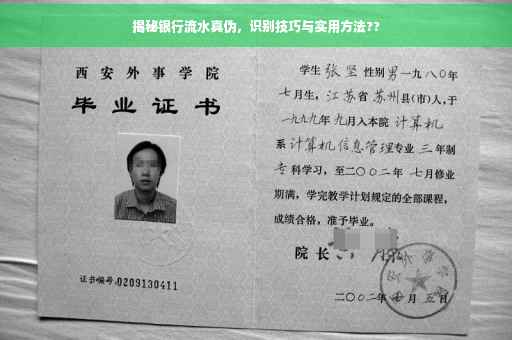 揭秘银行流水真伪，识别技巧与实用方法??
西安外事学院
毕业证书
证书编号:0209130411
学生 张坚 性别 男 一九八〇年
七月生，江苏省 苏州县(市)人，于
一九九九年 九月入本院 计算机
系 计算机信息管理 专业 三 年制
专科学习，至二〇〇二年 七月修业
期满，学完教学计划规定的全部课程，
成绩合格，准予毕业。
院长
二〇〇二年 七月 五日